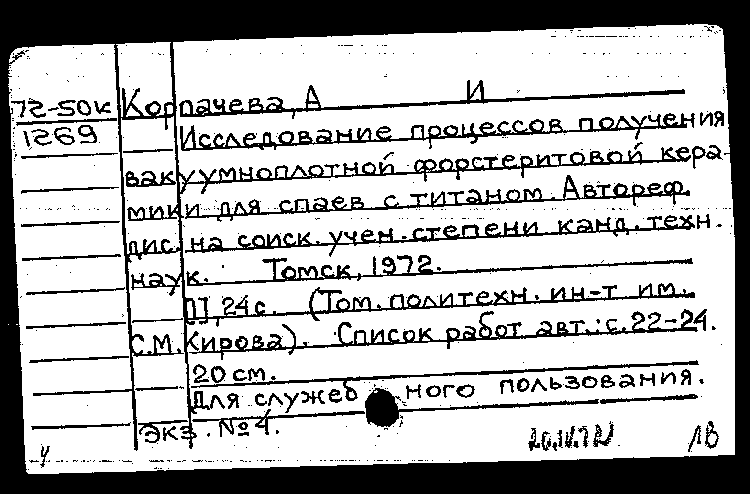 72-50к Корпачева, А И
1269 Исследование процессов получения
вакуумноплотной форстеритовой кера-
мики для спаев с титаном. Автореф.
дис. на соиск. учен. степени канд. техн.
наук. Томск, 1972.
II, 24 с. (Том. политехн. ин-т им.
С.М. Кирова). Список работ авт.: с. 22-24.
20 см.
Для служебного пользования.
Экз. № 4.